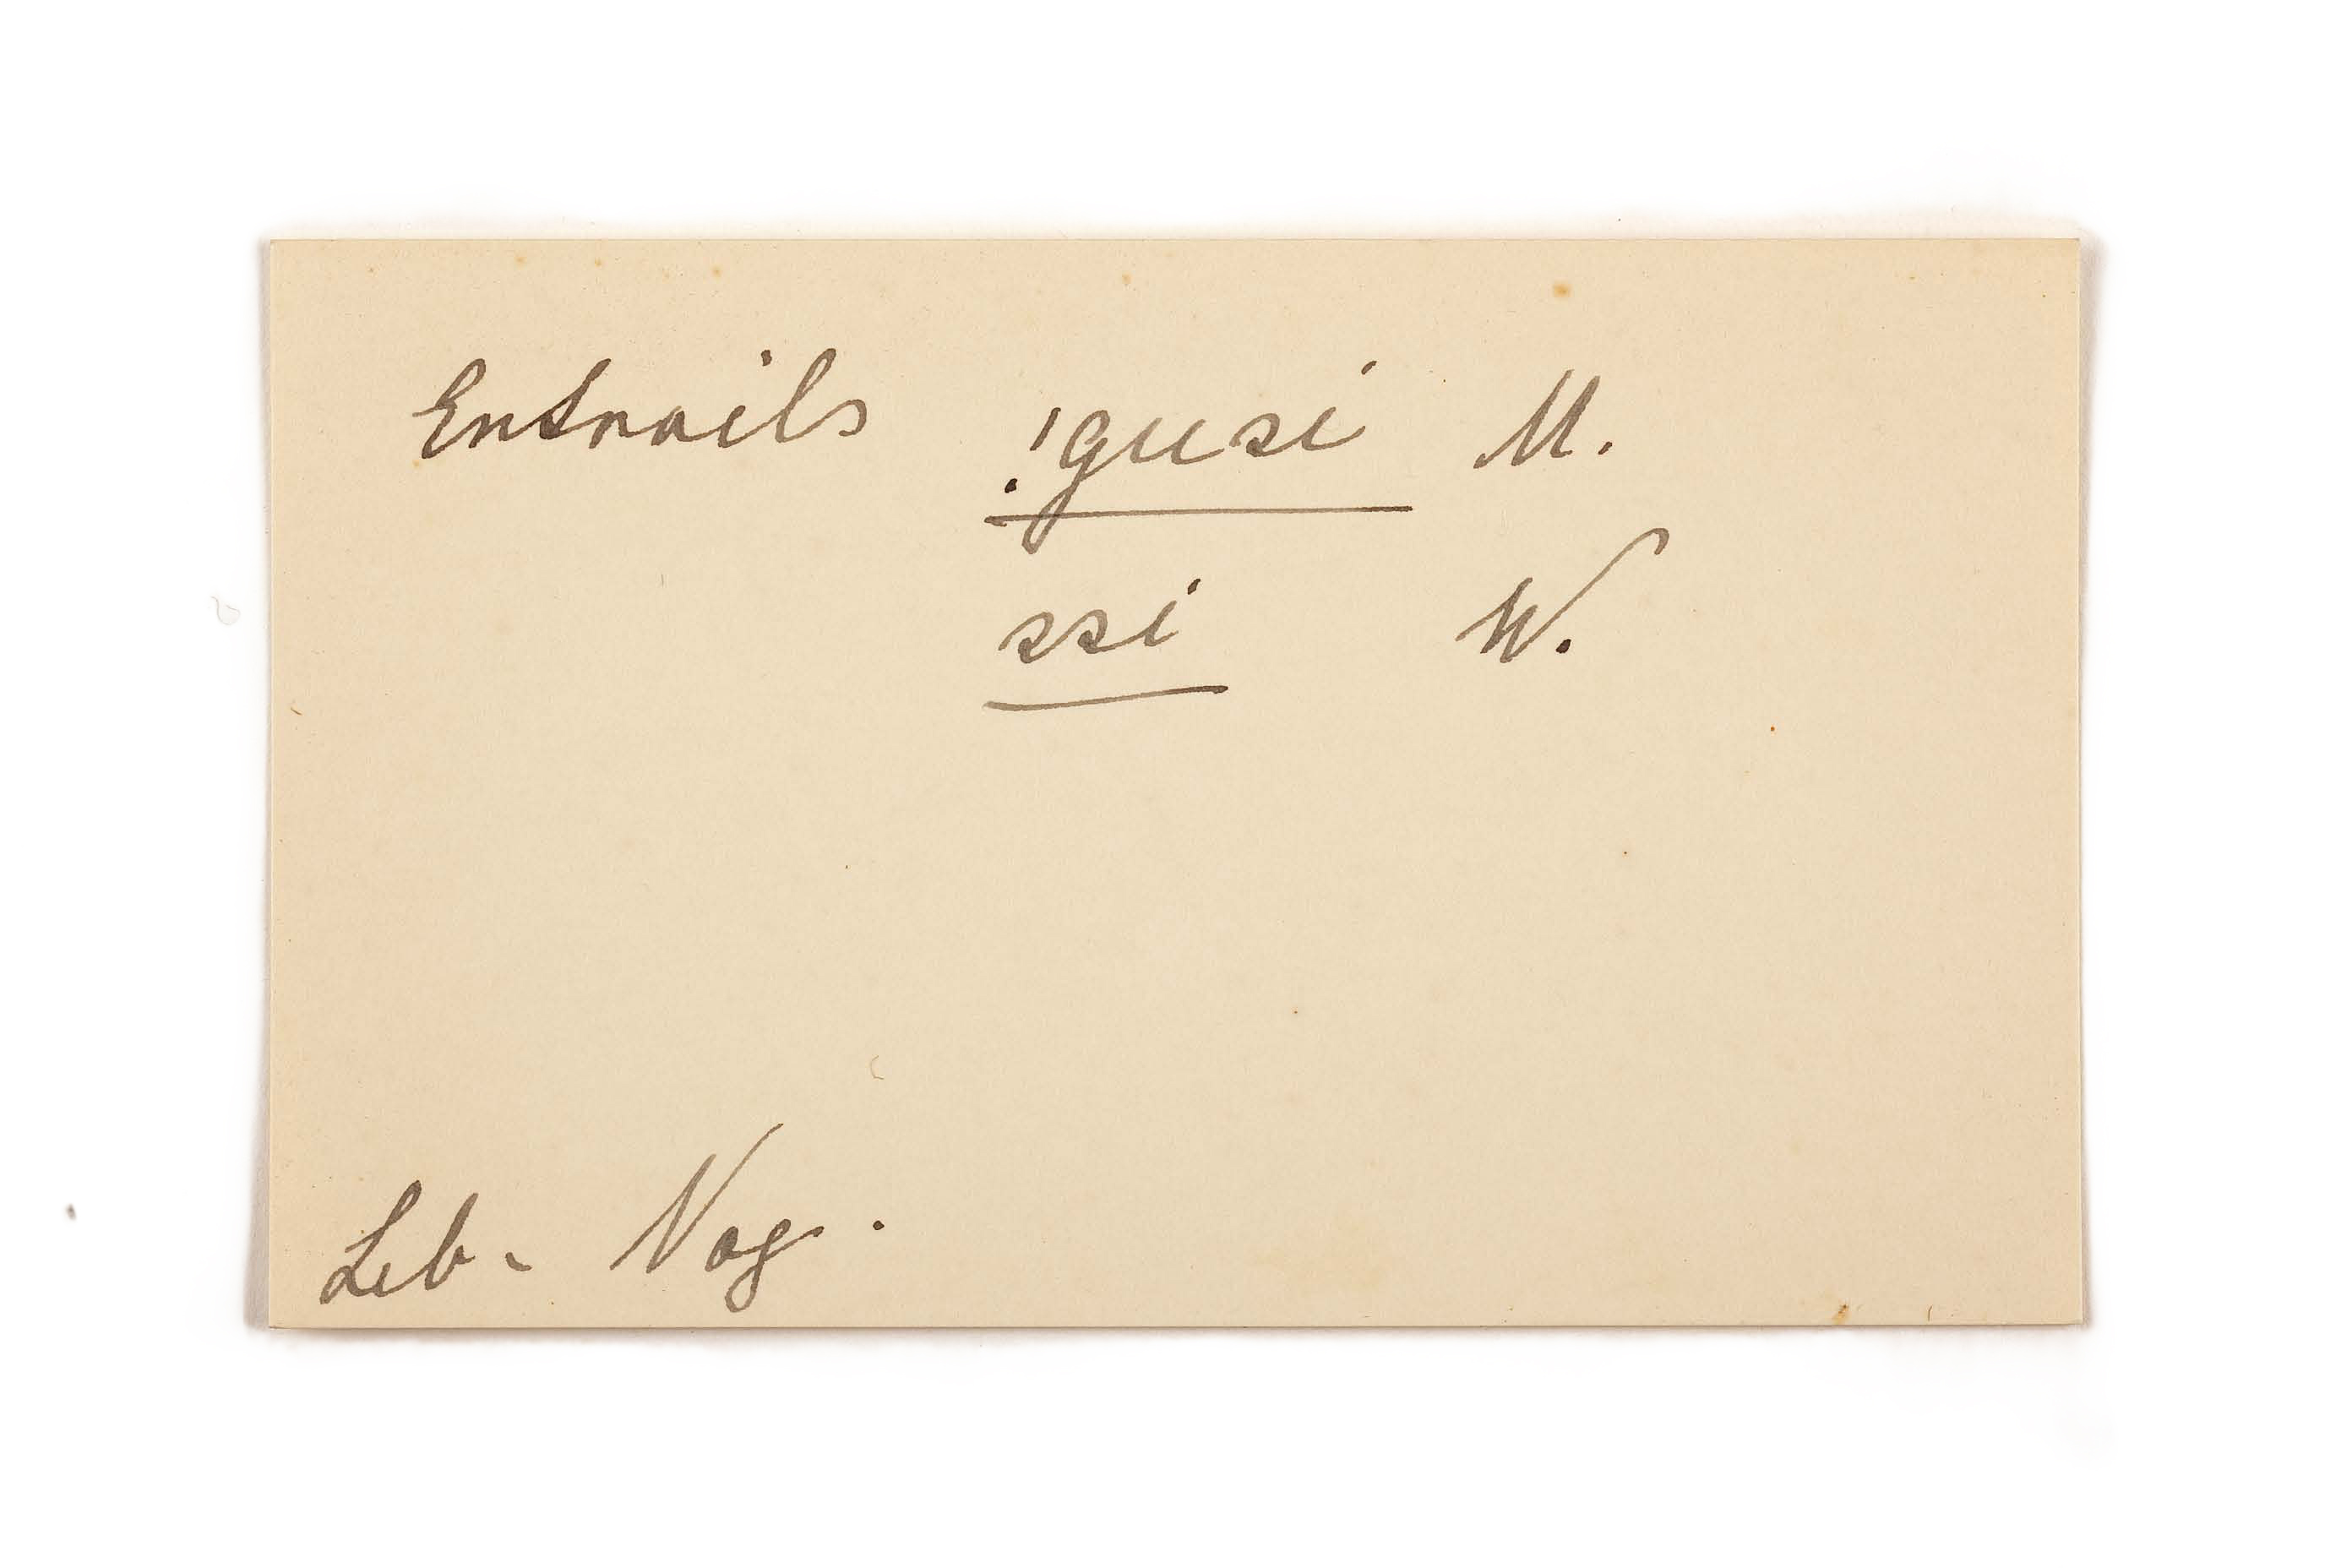 Entrails !gusi M.
ssi W.
Leb - Nog.